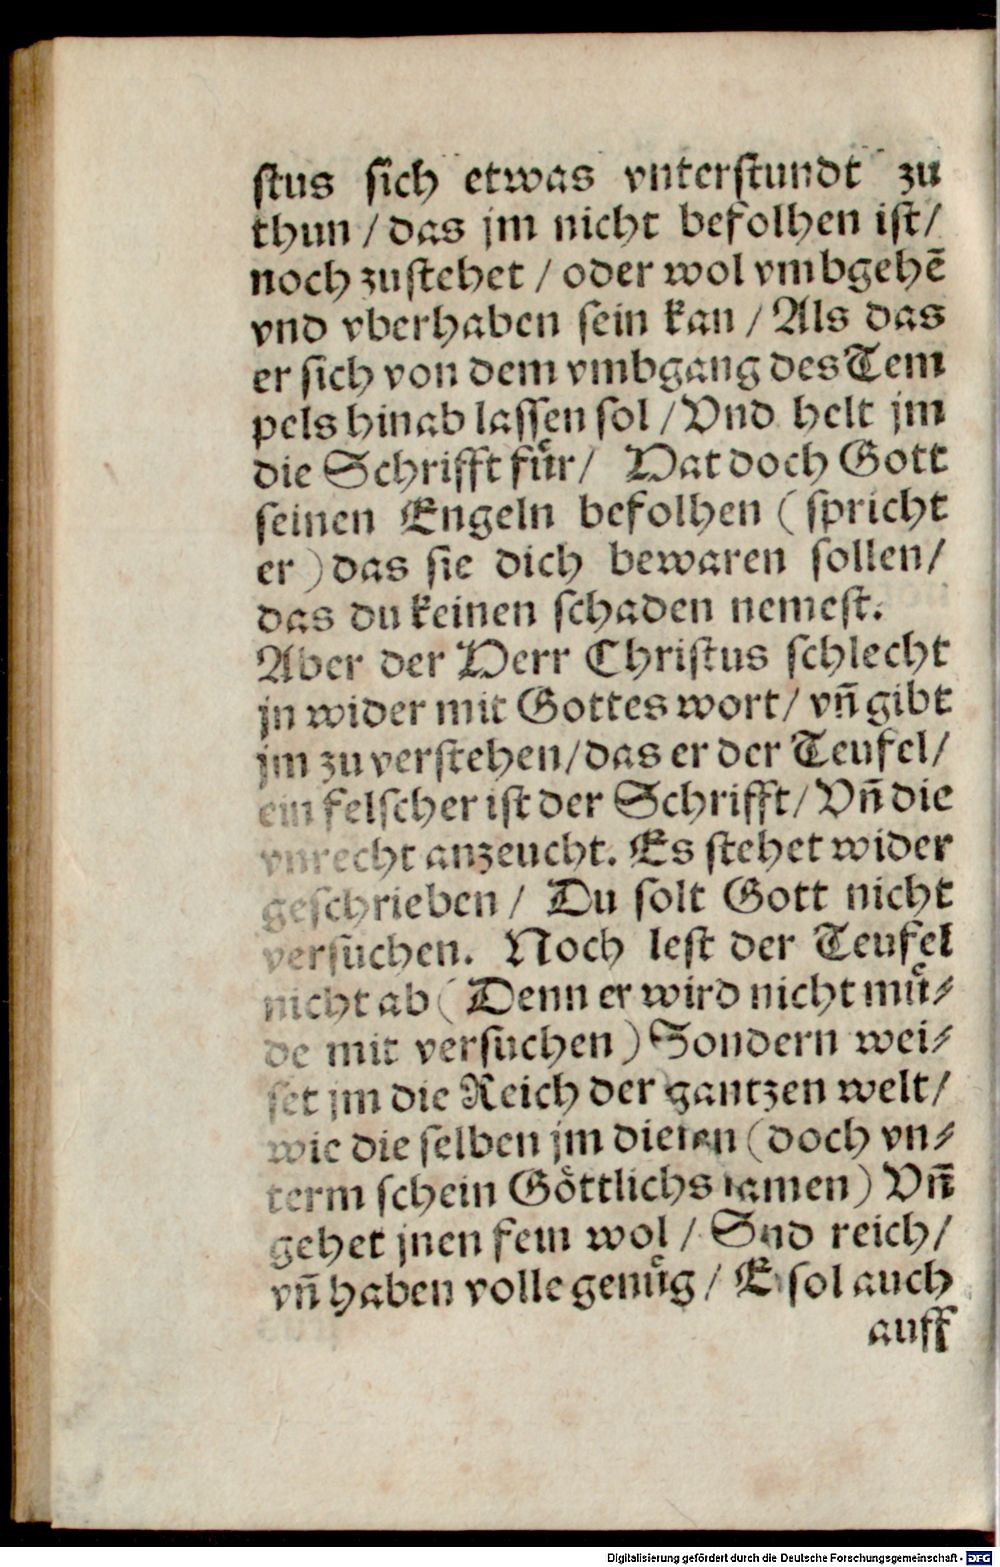 stus sich etwas vnterstundt zu
thun / das jm nicht befolhen ist /
noch zustehet / oder wol vmbgehē
vnd vberhaben sein kan / Als das
er sich von dem vmbgang des Tem
pels hinab lassen sol / Vnd helt jm
die Schrifft fuͤr / Hat doch Gott
seinen Engeln befolhen ( spricht
er ) das sie dich bewaren sollen /
das du keinen schaden nemest.
Aber der Herr Christus schlecht
jn wider mit Gottes wort / vñ gibt
jm zu verstehen / das er der Teufel /
ein felscher ist der Schrifft / Vñ die
vnrecht anzeucht. Es stehet wider
geschrieben / Du solt Gott nicht
versuchen. Noch lest der Teufel
nicht ab ( Denn er wird nicht muͤ⸗
de mit versuchen ) Sondern wei⸗
set jm die Reich der gantzen welt /
wie die selben jm dienen ( doch vn⸗
term schein Goͤttlichs namen ) Vñ
gehet jnen fein wol / Sind reich /
vñ haben volle genuͤg / Er sol auch
auff
Digitalisierung gefördert durch die Deutsche Forschungsgemeinschaft - DFG